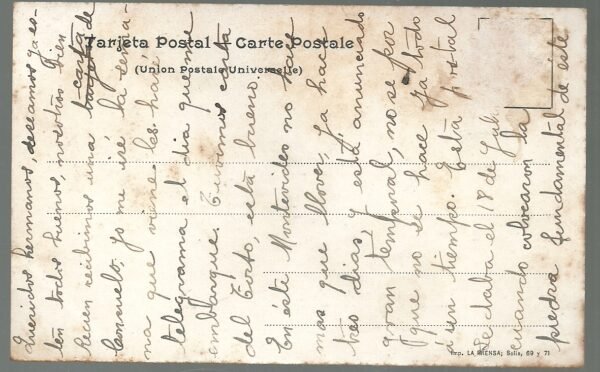 Tarjeta Postal - Carte Postale
(Union Postale Universelle)
Queridos hermanos, deseamos ya es-
ten todos buenos, nosotros bien
Recien recibimos una carta de
Consuelo, yo me iré la sema-
na que viene les haré
telegrama el dia que me
embarque. Tuvimos carta
del Torto, está bueno.
En éste Montevideo no hace
mas que llover, ya hace
tres dias, y está anunciado
gran temporal, no se por
que no se hace ya todo
á un tiempo. Esta postal
se daba el 18 de Jul.
cuando colocaron la
piedra fundamental de éste
Imp. LA PRENSA; Solis, 69 y 71